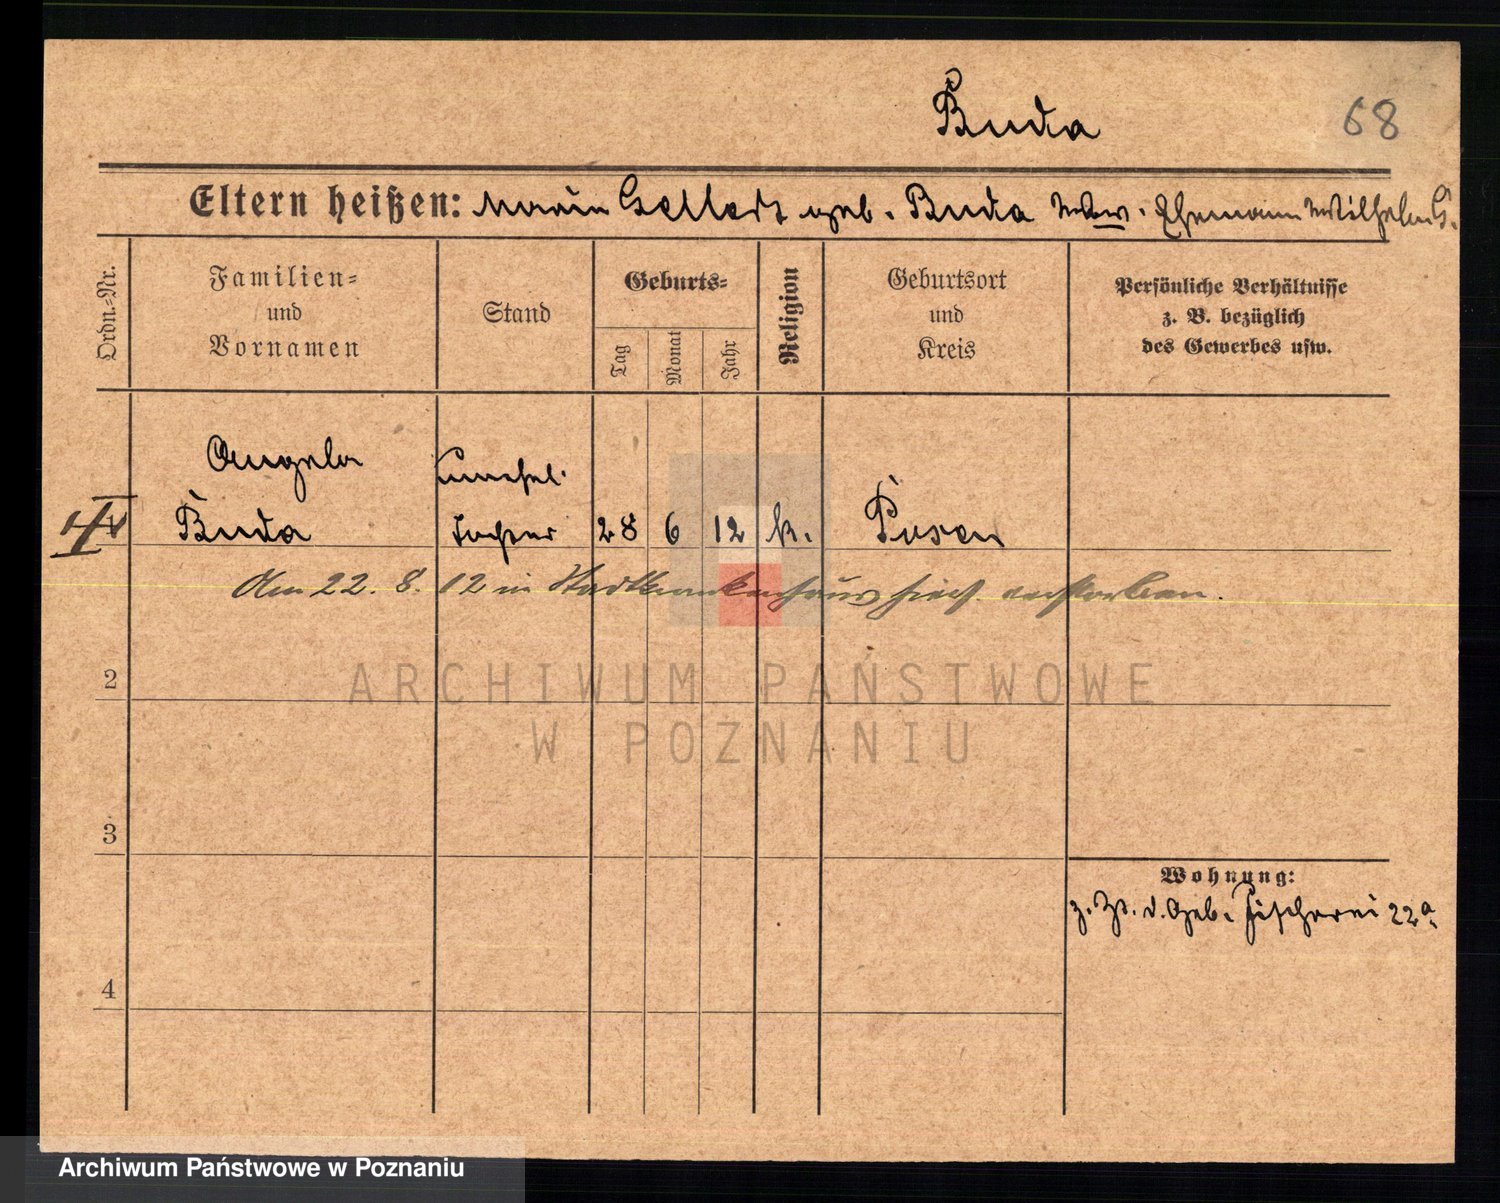 Buda
68
Eltern heißen: Maria Gellert geb. Buda Ww. Ehemann Wilhelm G.
Ordn.-Nr.
Familien- und Vornamen
Stand
Geburts-
Tag
Monat
Jahr
Religion
Geburtsort und Kreis
Persönliche Verhältnisse z. B. bezüglich des Gewerbes usw.
Angela unehel.
Buda Tochter 28 6 12 k. Posen
Am 22. 8. 12 in Stadtkrankenhaus hies. verstorben.
2
3
4
Wohnung:
z. Zt. d. Geb. Fischerei 22a
ARCHIWUM PAŃSTWOWE
W POZNANIU
Archiwum Państwowe w Poznaniu